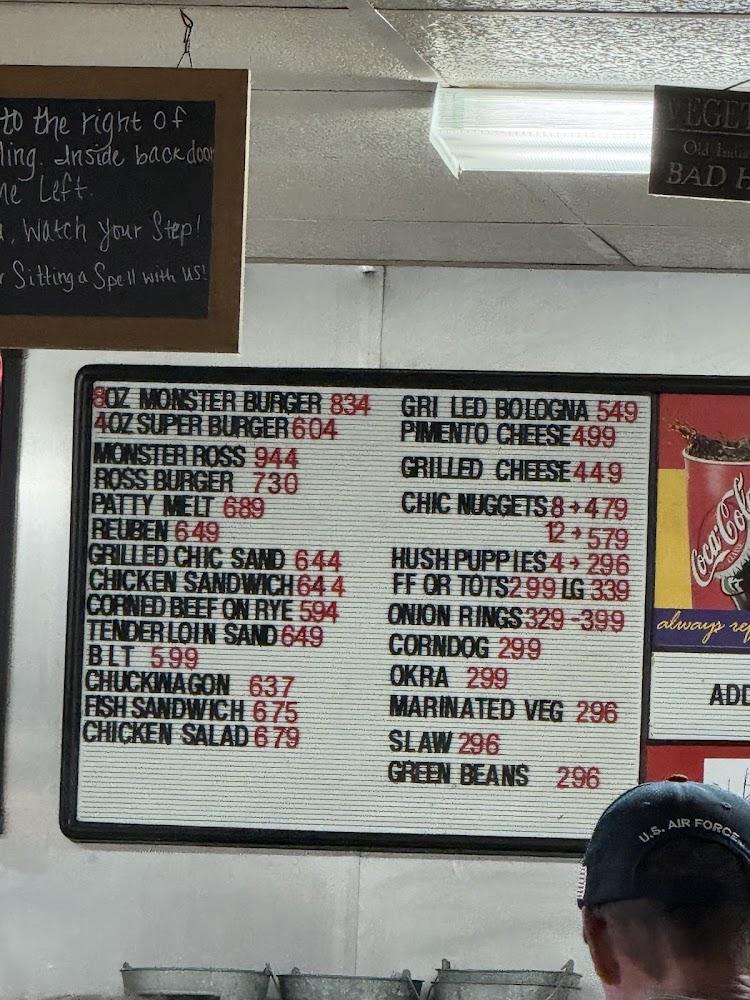 to the right of
ling. Inside backdoor
he Left.
, Watch your Step!
r Sitting a Spell with US!
VEGE
Old India
BAD
8OZ MONSTER BURGER 834
4OZ SUPER BURGER 604
MONSTER ROSS 944
ROSS BURGER 730
PATTY MELT 689
REUBEN 649
GRILLED CHIC SAND 644
CHICKEN SANDWICH 644
CORNED BEEF ON RYE 594
TENDERLOIN SAND 649
BLT 599
CHUCKWAGON 637
FISH SANDWICH 675
CHICKEN SALAD 679
GRI LED BOLOGNA 549
PIMENTO CHEESE 499
GRILLED CHEESE 449
CHIC NUGGETS 8→479
12→579
HUSH PUPPIES 4→296
FF OR TOTS 299 LG 339
ONION RINGS 329-399
CORNDOG 299
OKRA 299
MARINATED VEG 296
SLAW 296
GREEN BEANS 296
Coca-Cola
always ref
ADD
U.S. AIR FORCE